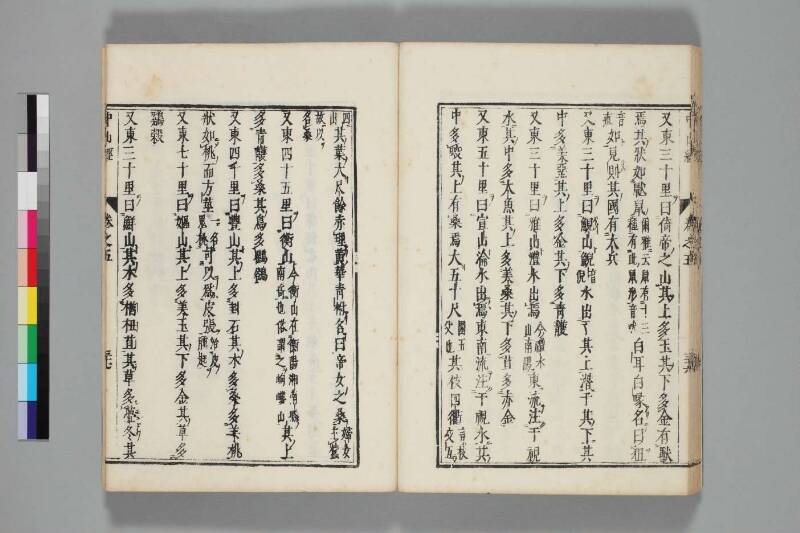 又東三十里曰倚帝之山其上多玉其下多金有獸
焉其狀如鼣鼠爾雅云鼠有十三種有此鼠形音吠白耳白喙名曰狙
如見則其國有大兵
又東三十里曰鯢山鯢水出于其上潛于其下其
中多美堊其上多金其下多青雘
又東三十里曰雅山澧水出焉今澧水東流注于視
水其中多大魚其上多美桑其下多苴多赤金
又東五十里曰宣山淪水出焉東南流注于視水其
中多蛟其上有桑焉大五十尺圍五丈也其枝四衢言枝交互
四出其葉大尺餘赤理黃華青柎名曰帝女之桑婦女主蠶
故以名桑
又東四十五里曰衡山今衡山在衡陽湘南縣南嶽也俗謂之岣嶁山其上
多青雘多桑其鳥多鸜鵒
又東四十里曰豐山其上多封石其木多桑多羊桃
狀如桃而方莖一名鬼桃可以為皮張治皮腫起
又東七十里曰嫗山其上多美玉其下多金其草多
雞穀
又東三十里曰鮮山其木多楢杻苴其草多虋冬其
中山經
卷之五